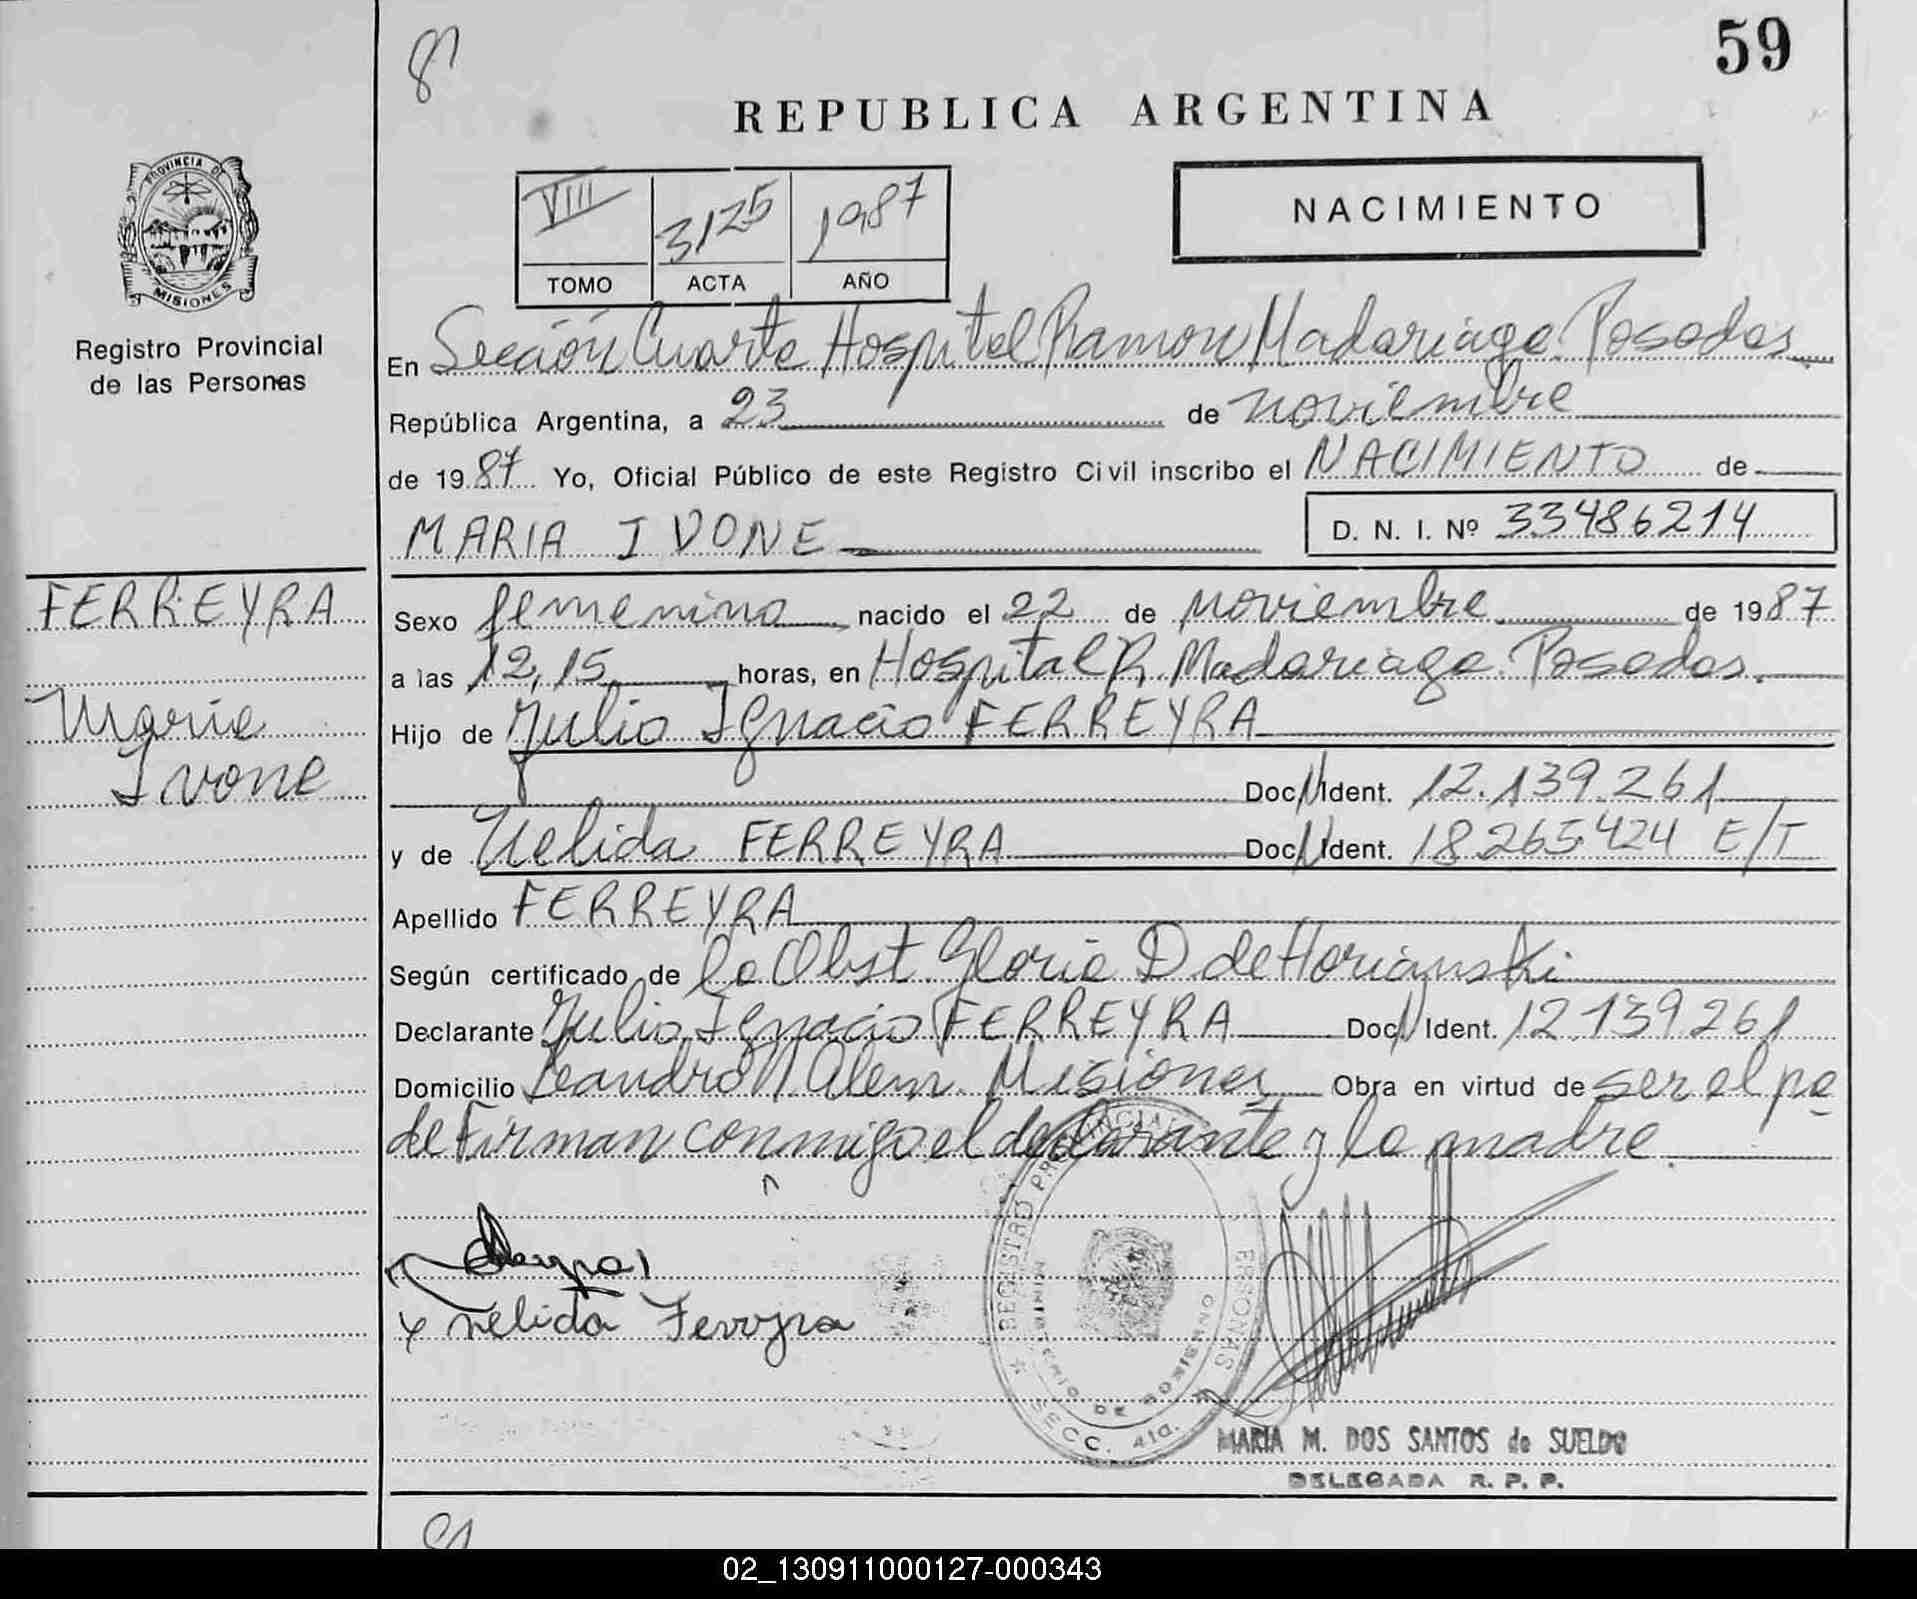 59
REPUBLICA ARGENTINA
VIII 3125 1987
TOMO ACTA AÑO
NACIMIENTO
PROVINCIA DE MISIONES
Registro Provincial
de las Personas
FERREYRA
Maria
Ivone
En Sección Cuarta Hospital Ramon Madariaga. Posadas
República Argentina, a 23 de noviembre
de 1987 Yo, Oficial Público de este Registro Civil inscribo el NACIMIENTO de
MARIA IVONE D. N. I. Nº 33486214
Sexo femenino nacido el 22 de noviembre de 1987
a las 12,15 horas, en Hospital R. Madariaga. Posadas.
Hijo de Julio Ignacio FERREYRA
Doc. Ident. 12.139.261
y de Nelida FERREYRA Doc. Ident. 18.265.424 E/T
Apellido FERREYRA
Según certificado de la Obst. Gloria D. de Horianski
Declarante Julio Ignacio FERREYRA Doc. Ident. 12.139.261
Domicilio Leandro N Alem. Misiones Obra en virtud de ser el pa
de Firman conmigo el declarante y la madre.
x nelida Ferreyra
REGISTRO PROVINCIAL PERSONAS
DE GOBIERNO
SECC. 4ta.
MARIA M. DOS SANTOS de SUELDO
DELEGADA R. P. P.
02_130911000127-000343